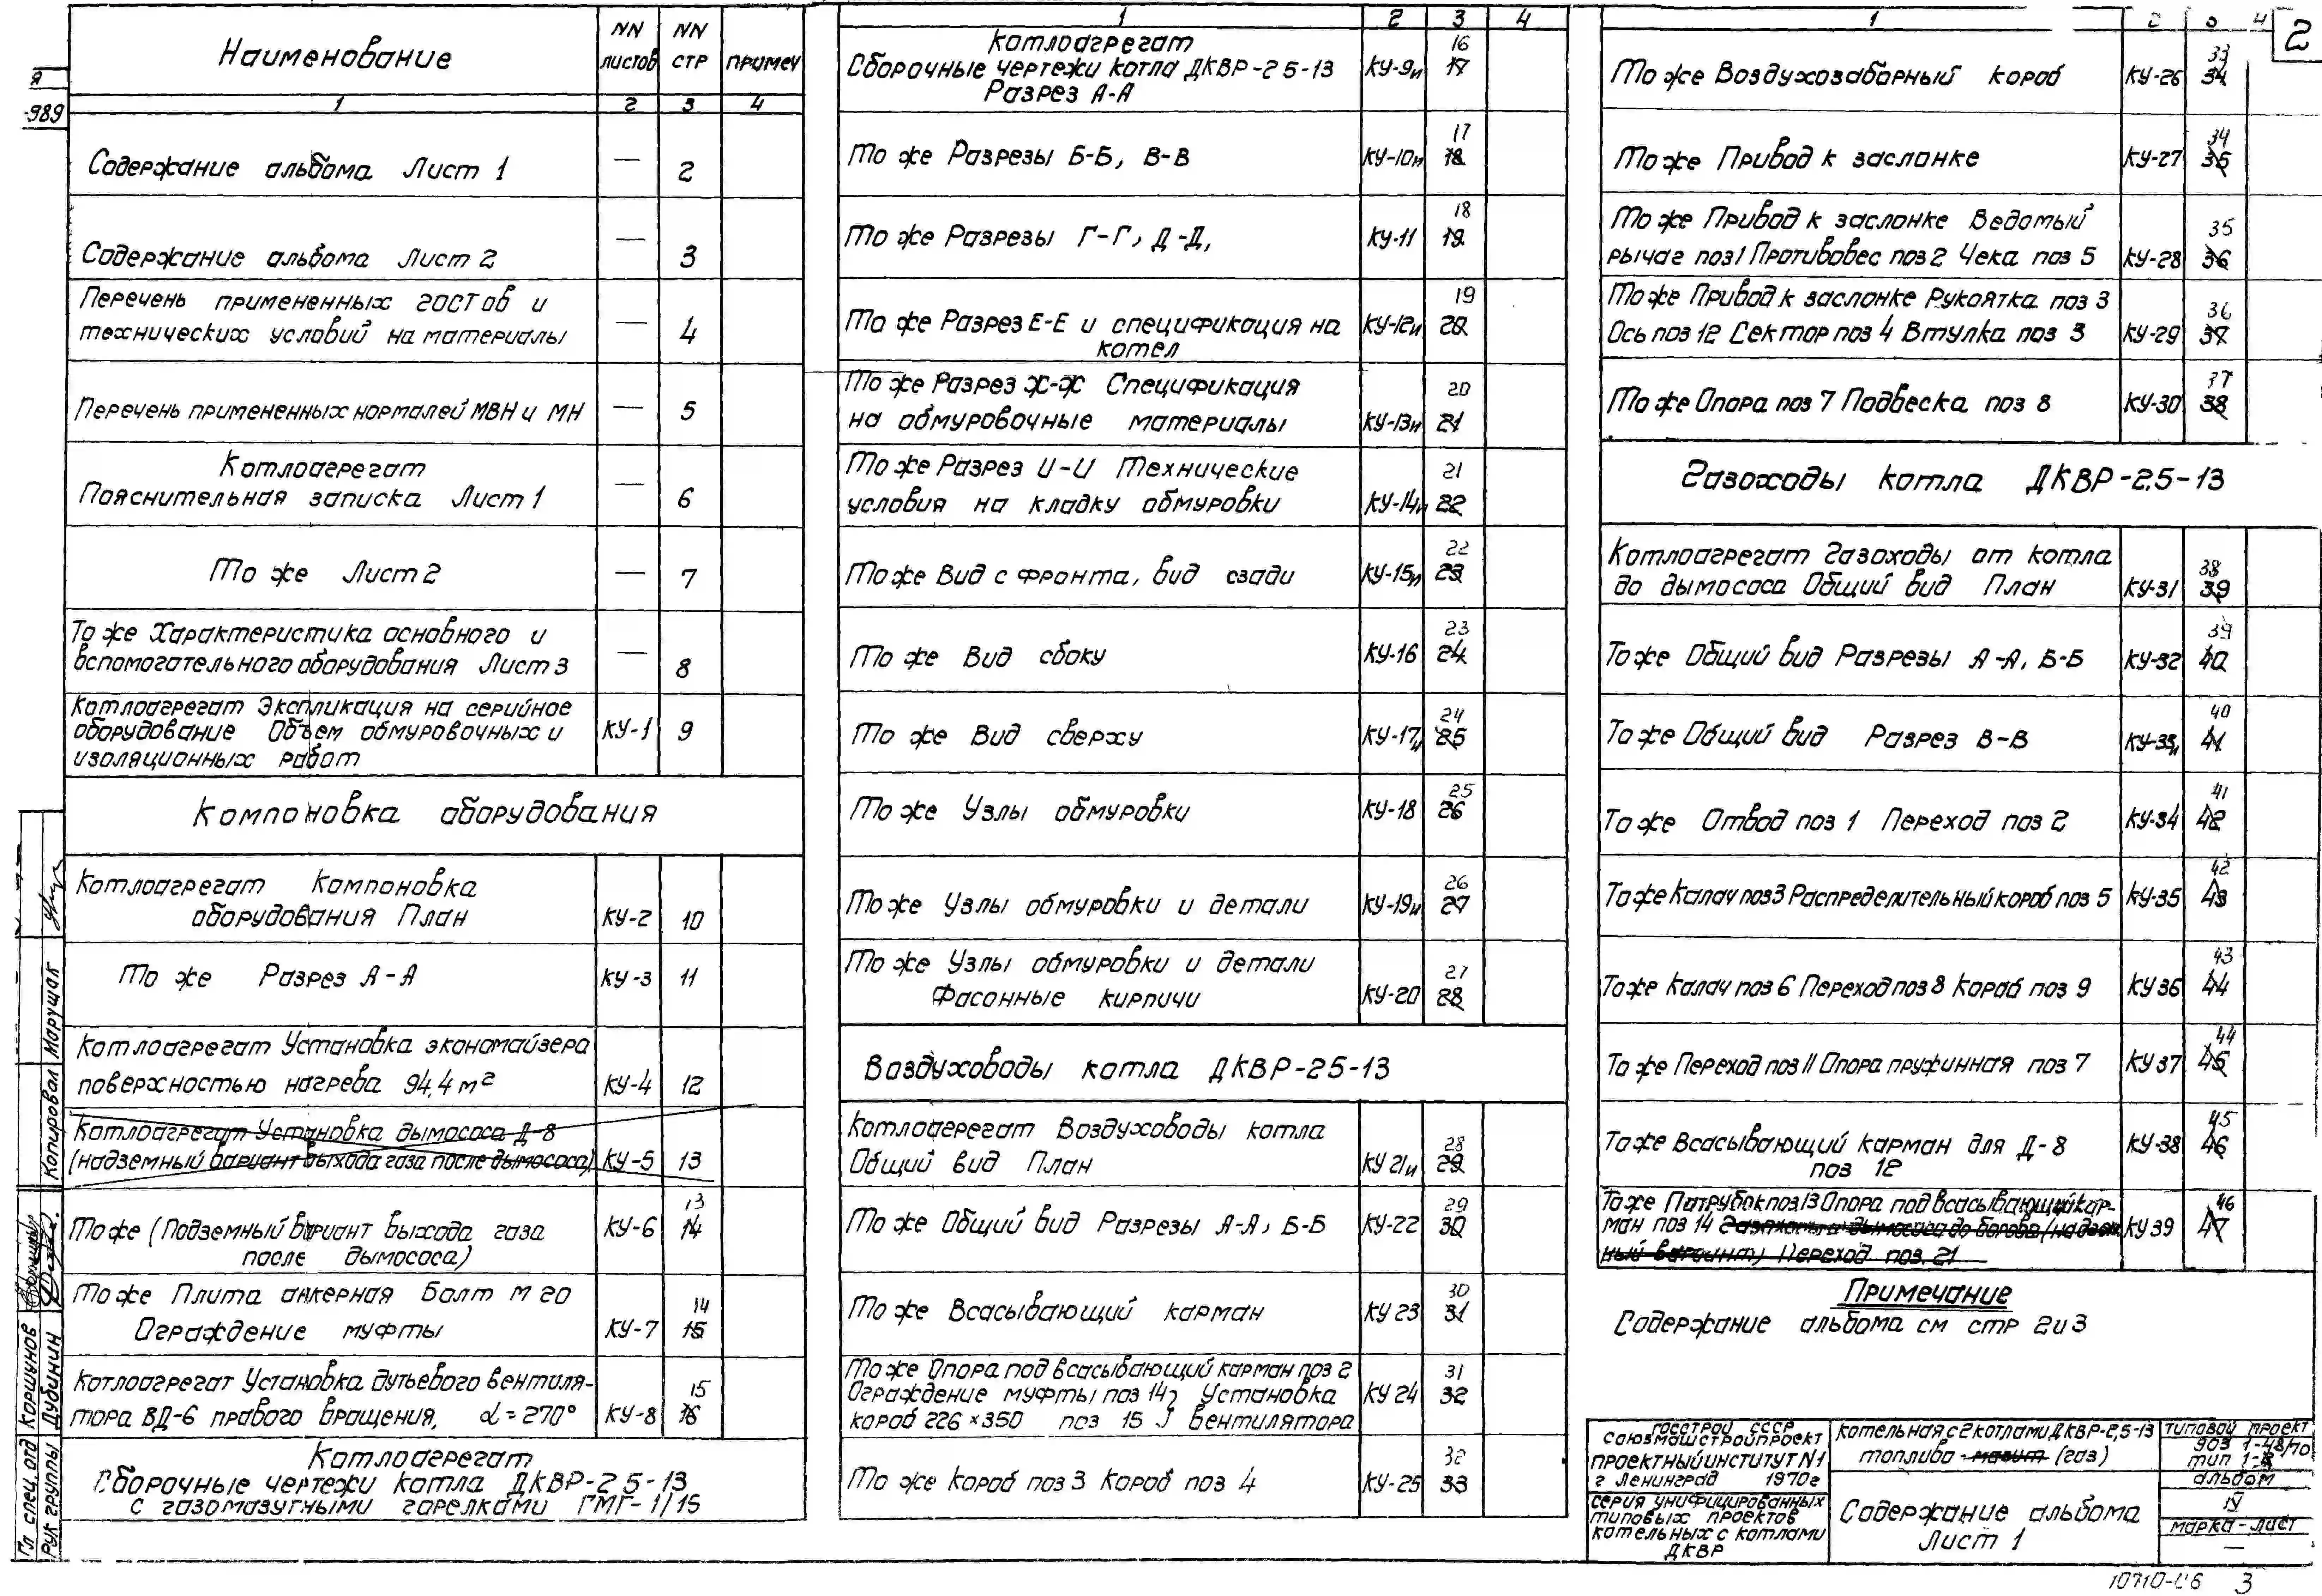 2
Я
-989
Наименование
NN листов
NN стр
примеч
1 2 3 4
Содержание альбома Лист 1 — 2
Содержание альбома Лист 2 — 3
Перечень примененных гостов и
технических условий на материалы — 4
Перечень примененных нормалей МВН и МН — 5
Котлоагрегат
Пояснительная записка Лист 1 — 6
То же Лист 2 — 7
То же Характеристика основного и
вспомогательного оборудования Лист 3 — 8
Котлоагрегат Экспликация на серийное
оборудование Объем обмуровочных и КУ-1 9
изоляционных работ
Компоновка оборудования
Котлоагрегат Компоновка
оборудования План КУ-2 10
То же Разрез А-А КУ-3 11
Котлоагрегат Установка экономайзера
поверхностью нагрева 94,4 м² КУ-4 12
Котлоагрегат Установка дымососа Д-8
(надземный вариант выхода газа после дымососа) КУ-5 13
13
То же (Подземный вариант выхода газа КУ-6 14
после дымососа)
То же Плита анкерная Болт М 20 14
Ограждение муфты КУ-7 15
Котлоагрегат Установка дутьевого вентиля- 15
тора ВД-6 правого вращения, α=270° КУ-8 16
Котлоагрегат
Сборочные чертежи котла ДКВР-25-13
с газомазутными горелками ГМГ-1/15
1 2 3 4
Котлоагрегат 16
Сборочные чертежи котла ДКВР-25-13 КУ-9и 17
Разрез А-А
17
То же Разрезы Б-Б, В-В КУ-10и 18
18
То же Разрезы Г-Г, Д-Д, КУ-11 19
19
То же Разрез Е-Е и спецификация на КУ-12и 20
котел
То же Разрез Ж-Ж Спецификация 20
на обмуровочные материалы КУ-13и 21
То же Разрез И-И Технические 21
условия на кладку обмуровки КУ-14и 22
22
То же Вид с фронта, вид сзади КУ-15и 23
23
То же Вид сбоку КУ-16 24
24
То же Вид сверху КУ-17и 25
25
То же Узлы обмуровки КУ-18 26
26
То же Узлы обмуровки и детали КУ-19и 27
То же Узлы обмуровки и детали 27
Фасонные кирпичи КУ-20 28
Воздуховоды котла ДКВР-25-13
Котлоагрегат Воздуховоды котла 28
Общий вид План КУ 21и 29
29
То же Общий вид Разрезы А-А, Б-Б КУ-22 30
30
То же Всасывающий карман КУ 23 31
То же Опора под всасывающий карман поз 2 31
Ограждение муфты поз 14 Установка КУ 24 32
короб 226×350 поз 15 вентилятора
32
То же Короб поз 3 Короб поз 4 КУ-25 33
1 2 3 4
33
То же Воздухозаборный короб КУ-26 34
34
То же Привод к заслонке КУ-27 35
То же Привод к заслонке Ведомый 35
рычаг поз 1 Противовес поз 2 Чека поз 5 КУ-28 36
То же Привод к заслонке Рукоятка поз 3 36
Ось поз 12 Сектор поз 4 Втулка поз 3 КУ-29 37
37
То же Опора поз 7 Подвеска поз 8 КУ-30 38
Газоходы котла ДКВР-2.5-13
Котлоагрегат Газоходы от котла 38
до дымососа Общий вид План КУ-31 39
39
То же Общий вид Разрезы А-А, Б-Б КУ-32 40
40
То же Общий вид Разрез В-В КУ-33и 41
41
То же Отвод поз 1 Переход поз 2 КУ-34 42
42
То же Калач поз 3 Распределительный короб поз 5 КУ-35 43
43
То же Калач поз 6 Переход поз 8 Короб поз 9 КУ 36 44
44
То же Переход поз 11 Опора пружинная поз 7 КУ 37 45
45
То же Всасывающий карман для Д-8 КУ-38 46
поз 12
То же Патрубок поз 13 Опора под всасывающий кар- 46
ман поз 14 Газоходы от дымососа до борова (надзем- КУ 39 47
ный вариант) Переход поз. 21
Примечание
Содержание альбома см стр 2 и 3
Госстрой СССР
Союзмашстройпроект
проектный институт N1
г Ленинград 1970г
серия унифицированных
типовых проектов
котельных с котлами
ДКВР
котельная с 2 котлами ДКВР-2,5-13
топливо - мазут (газ)
Содержание альбома
Лист 1
типовой проект
903 1-48/70
тип 1-
альбом
IV
марка-лист
—
10710-06 3
Гл спец. отд Коршунов
Рук группы Дубинин
Копировал Марущак